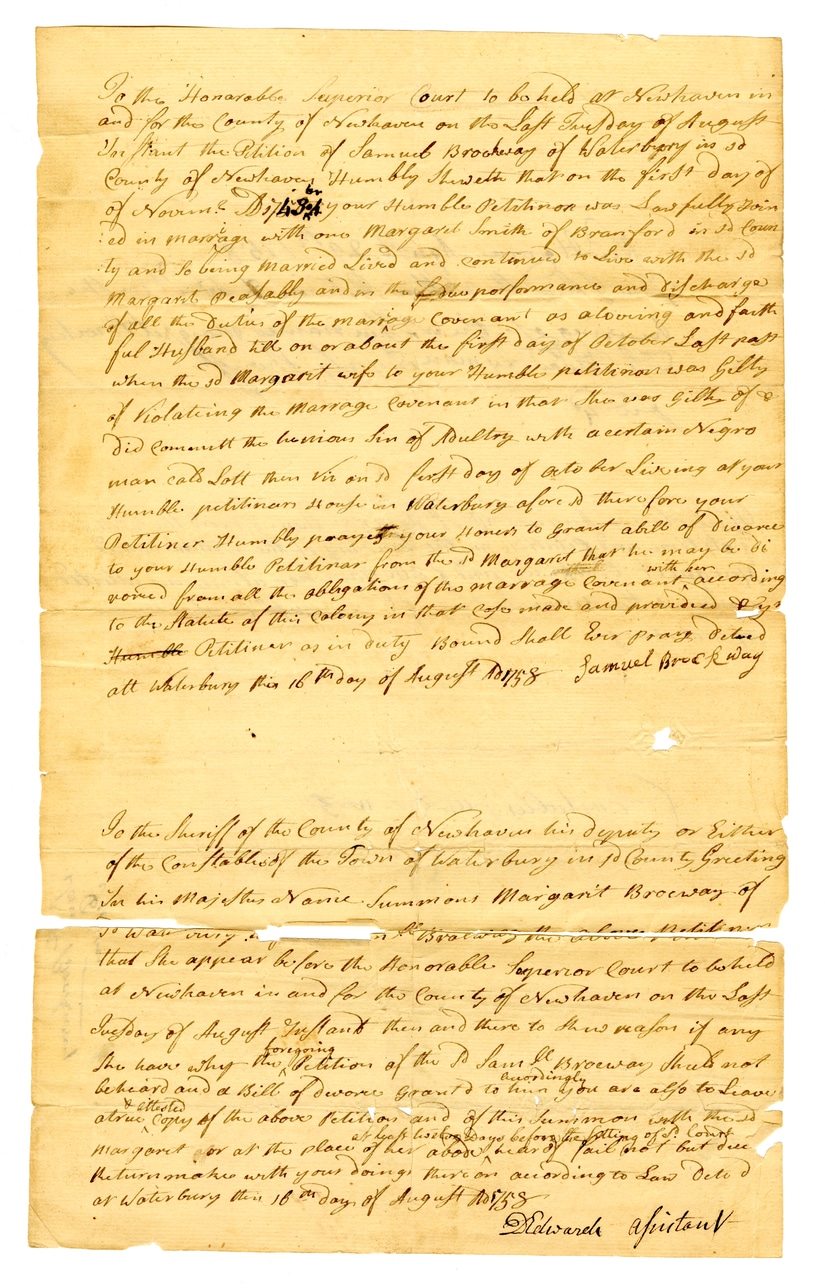 To the Honarable Superior Court to be held at Newhaven in
and for the County of Newhaven on the Last Tuesday of August
Instant the Petition of Samuel Brockway of Waterbury in sd
County of Newhaven Humbly Sheweth that on the first day of
of Novemr. your Humble Petitinor was Lawfully Join
ed in marrage with one Margarit Smith of Branford in sd Coun
ty and So being Married Lived and continued to Live with the sd
Margarit Peasably and in the due performance and discharge
of all the duties of the marrage Covenant as a loveing and faith
ful Husband till on or about the first day of October Last past
when the sd Margarit wife to your Humble petitinor was Gilty
of Violateing the Marrage Covenant in that She was Gilty of &
did commett the henious Sin of Adultry with a certain Negro
man cald Lott then viz on sd first day of October Liveing at your
Humble petitiners House in Waterbury afore sd therefore your
Petitiner Humbly prayeth your Honers to Grant a bill of divorce
to your Humble Petitinar from the sd Margarit that he may be di
vorced from all the obligations of the marrage Covenant with her according
to the Statute of this Colony in that Case made and provided & yr
Humble Petitiner as in duty Bound Shall Ever pray Deted
att Waterbury this 16th day of August AD 1758 Samuel Brockway
To the Sheriff of the County of Newhaven his deputy or Either
of the Constables of the Town of Waterbury in sd County Greeting
In his Majestus Name Summons Margarit Brocway of
sd Waterbury Brocway the above Petitiner
that She appear before the Honorable Superior Court to be held
at Newhaven in and for the County of Newhaven on the Last
Tuesday of August Instant then and there to Shew reason if any
She have why the foregoing Petition of the sd Samll Brocway Shuld not
be heard and a Bill of divorce Grantd to him acordingly you are also to Leave
a true & attested Copy of the above Petition and of this Summon with the sd
Margaret or at the place of her abode at least twelve days before the sitting of sd. Court heard of fail not but due
Return make with your doings thereon according to Law Deted
at Waterbury this 16th day of August AD 1758
D Edwards Assistant